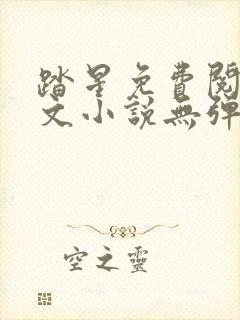 踏星免費閱
文小說無彈
空之靈